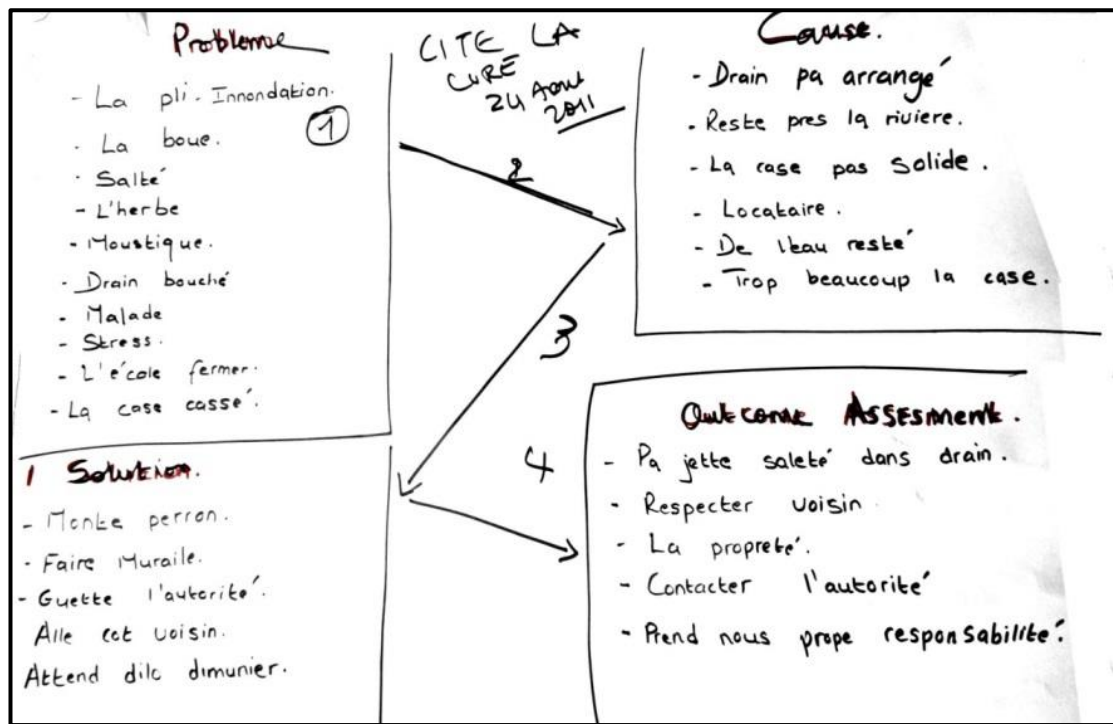 Probleme
- La pli. Innondation.
1
- La boue.
- Salté
- L'herbe
- Moustique.
- Drain bouché
- Malade
- Stress.
- L'école fermer.
- La case cassé.
CITE LA
CURE
24 Aout
2011
2
Cause.
- Drain pa arrangé
- Reste pres la riviere.
- La case pas solide.
- Locataire.
- De l'eau resté
- Trop beaucoup la case.
3
1 Solution.
- Monte perron.
- Faire Muraile.
- Guette l'autorité.
Alle cot voisin.
Attend dilo dimunier.
4
Outcome ASSESMENT.
- Pa jette saleté dans drain.
- Respecter voisin
- La propreté.
- Contacter l'autorité
- Prend nous prope responsabilité.